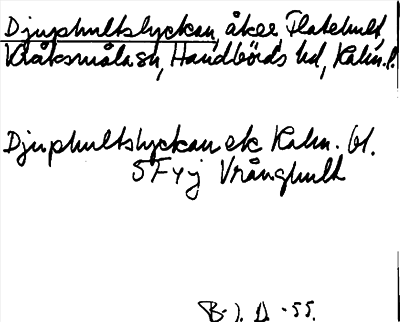 Djuphultslyckan, åker, Flatehult,
Kråksmåla sn, Handbörds hd, Kalm. l.
Djuphultslyckan ek Kalm. bl.
5F4j Vrånghult
B. I. D. -55.